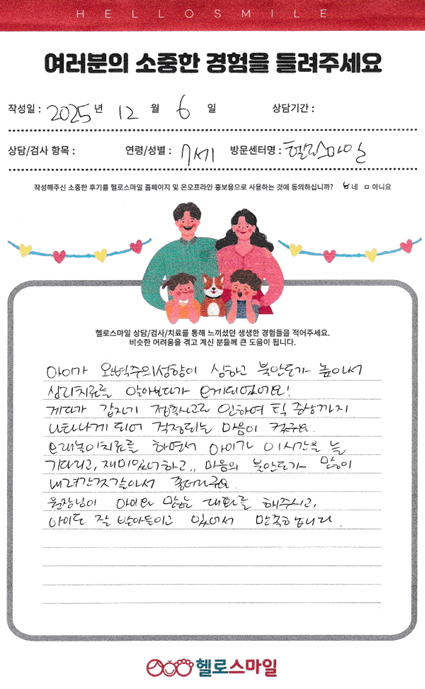 HELLOSMILE
여러분의 소중한 경험을 들려주세요
작성일 : 2025 년 12 월 6 일 상담기간 :
상담/검사 항목 : 연령/성별 : 7세 방문센터명 : 헬로스마일
작성해주신 소중한 후기를 헬로스마일 홈페이지 및 온오프라인 홍보용으로 사용하는 것에 동의하십니까? 네 ㅁ 아니요
헬로스마일 상담/검사/치료를 통해 느끼셨던 생생한 경험들을 적어주세요.
비슷한 어려움을 겪고 계신 분들께 큰 도움이 됩니다.
아이가 완벽주의성향이 심하고 불안도가 높아서
심리치료를 알아보다가 오게되었어요!
게다가 갑자기 인하여 틱 증상까지
나타나게 되어 걱정되는 마음이 커졌구요.
모래놀이치료를 하면서 아이가 이시간을 늘
기다리고, 재미있어하고,, 마음의 불안도가 많이
내려간것같아서 좋더라구요.
원장님이 아이와 많은 대화를 해주시고,
아이도 잘 받아들이고 있어서 만족합니다.
헬로스마일